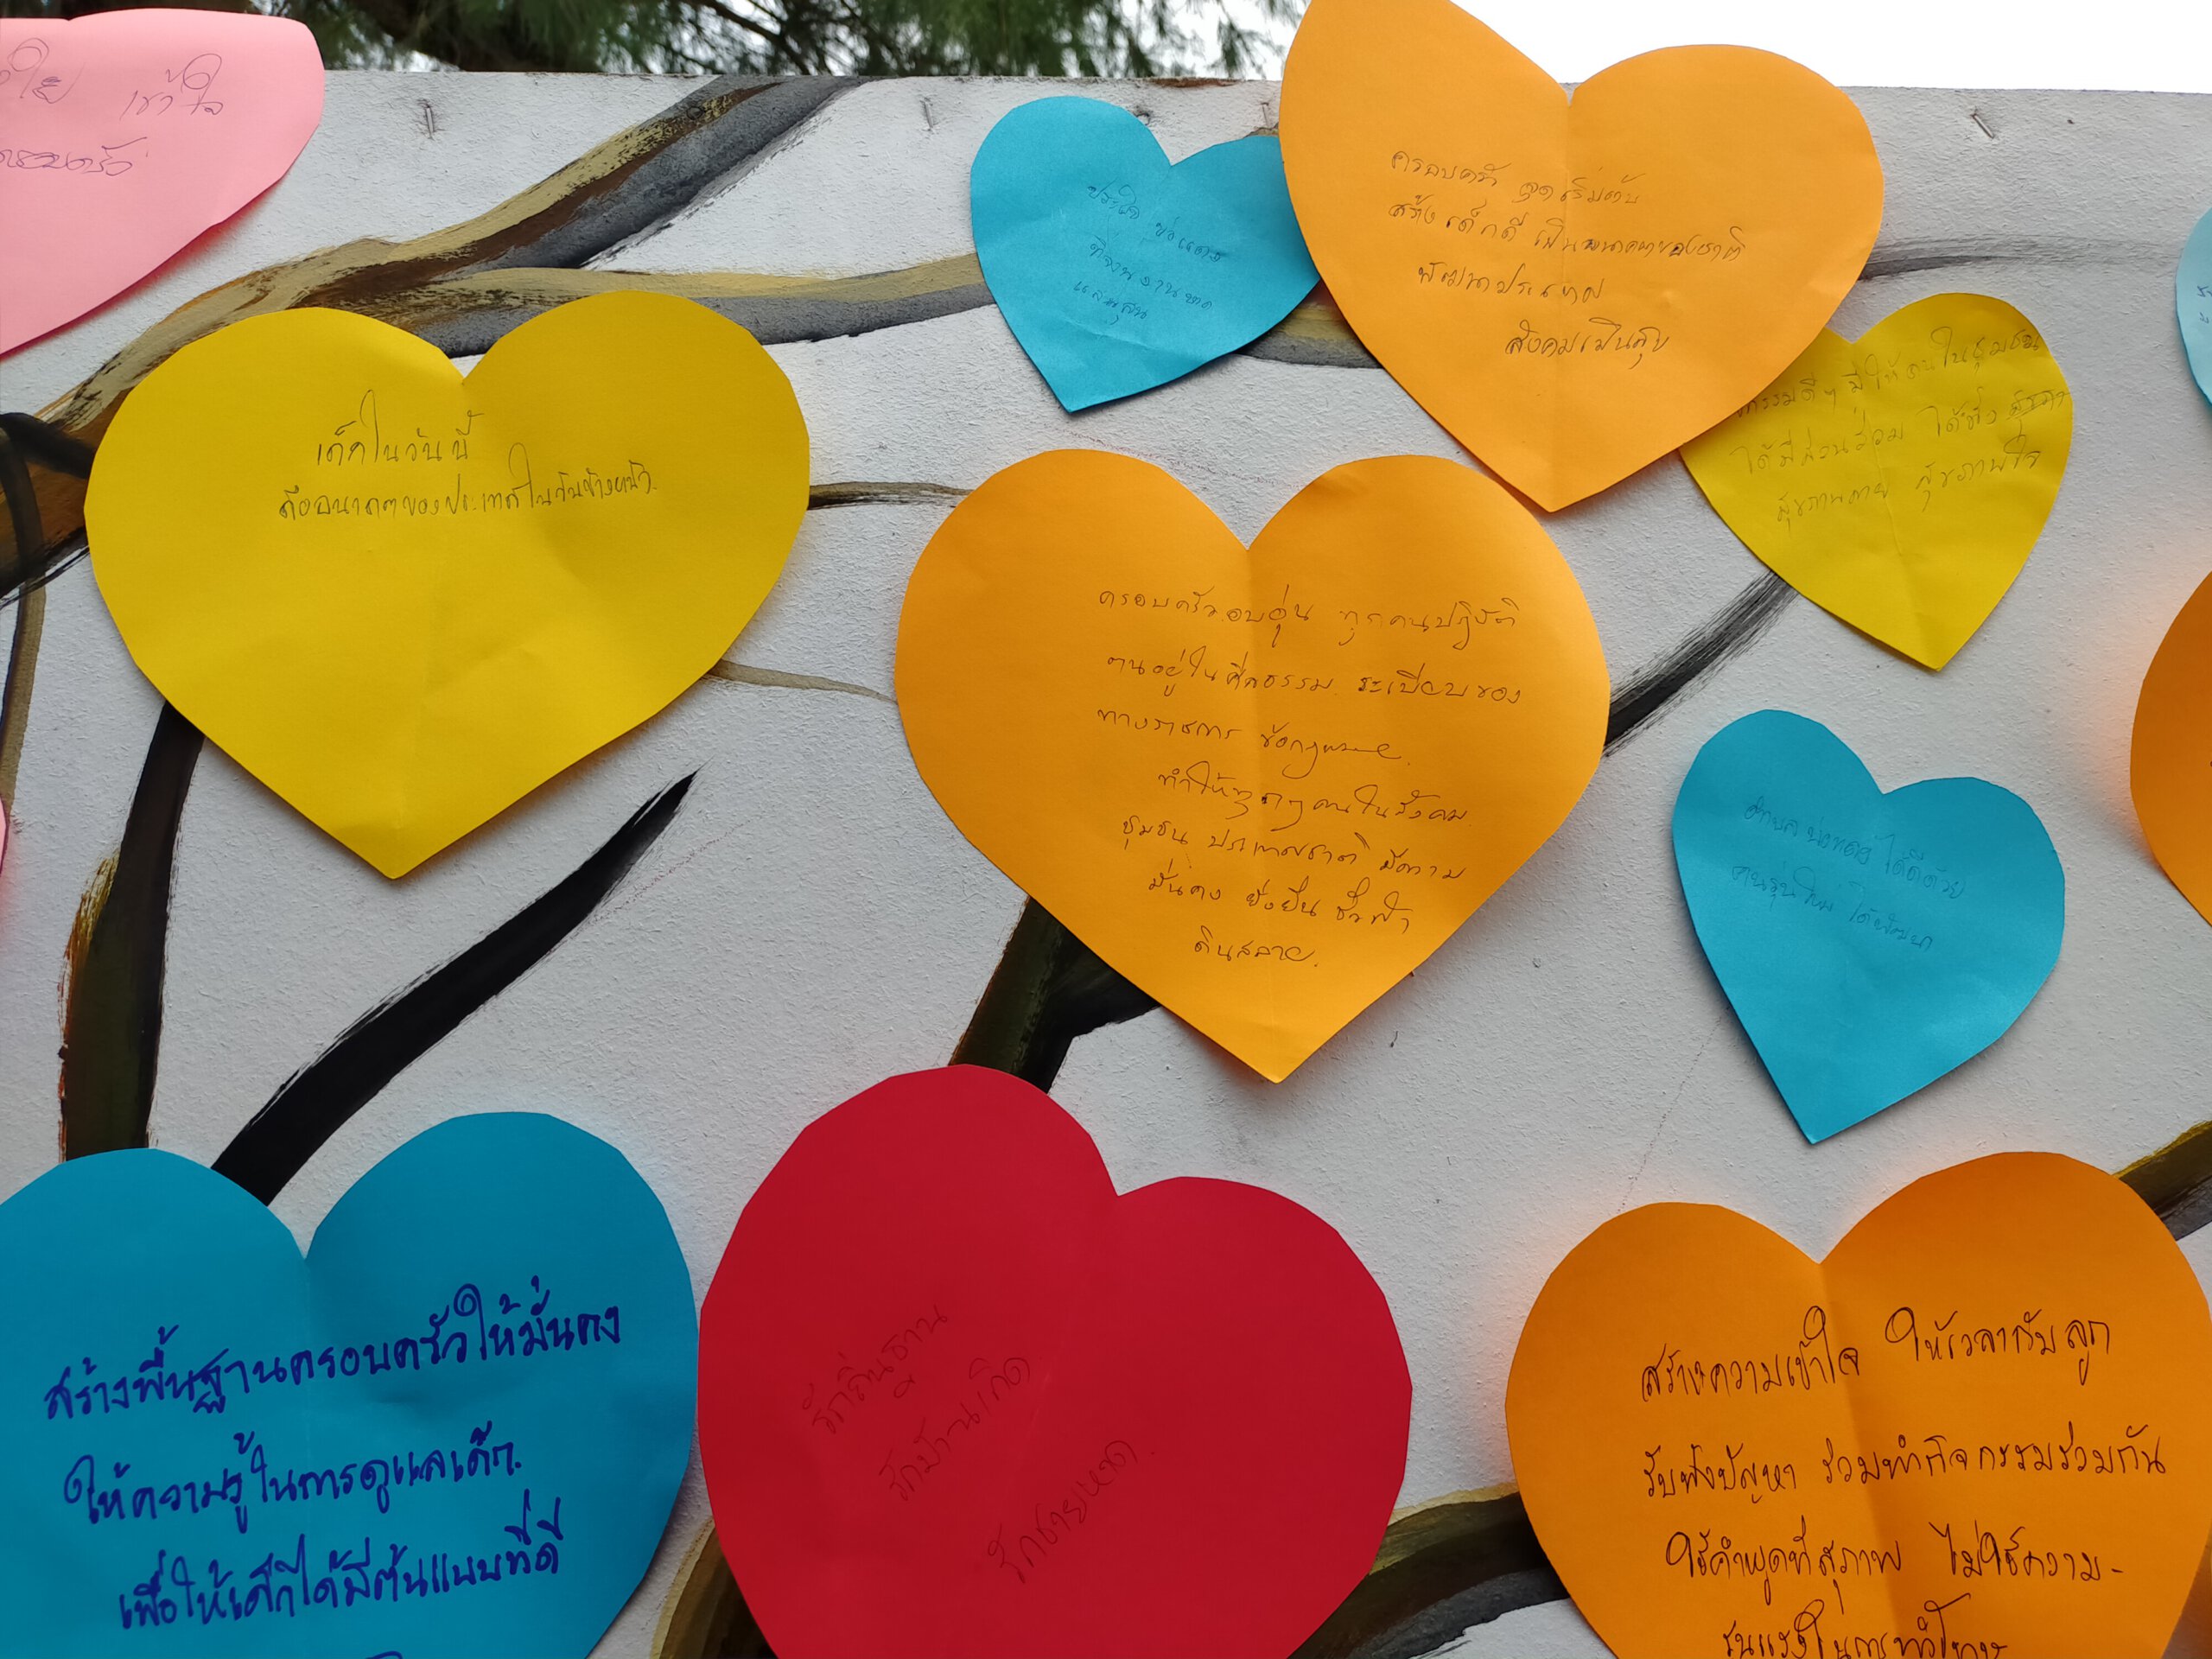 เข้าใจ
ครอบครัว
ครอบครัว จุดเริ่มต้น
สร้างเด็กดี เป็นอนาคตของชาติ
พัฒนาประเทศ
สังคมเป็นสุข
กรรมดีๆ มีให้คนในชุมชน
ได้มีส่วนร่วม ได้ทั้ง
สุขภาพกาย สุขภาพใจ
เด็กในวันนี้
คืออนาคตของประเทศในวันข้างหน้า
ครอบครัวอบอุ่น ทุกคนปฏิบัติ
ตนอยู่ในศีลธรรม ระเบียบของ
ทางราชการ ข้อกฎหมาย
ทำให้ทุกๆคนในสังคม
ชุมชน ประเทศชาติ มีความ
มั่นคง ยั่งยืน ชั่วฟ้า
ดินสลาย.
ได้ดีด้วย
คนรุ่นใหม่ ได้พัฒนา
สร้างพื้นฐานครอบครัวให้มั่นคง
ให้ความรู้ในการดูแลเด็ก.
เพื่อให้เด็กได้มีต้นแบบที่ดี
รักถิ่นฐาน
รักบ้านเกิด
รักชายหาด
สร้างความเข้าใจ ให้เวลากับลูก
รับฟังปัญหา ร่วมทำกิจกรรมร่วมกัน
ใช้คำพูดที่สุภาพ ไม่ใช้ความ-
รุนแรงในการทำโทษ